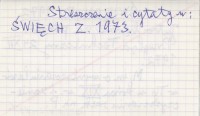 Streszczenie i cytaty w:
ŚWIĘCH Z. 1973.